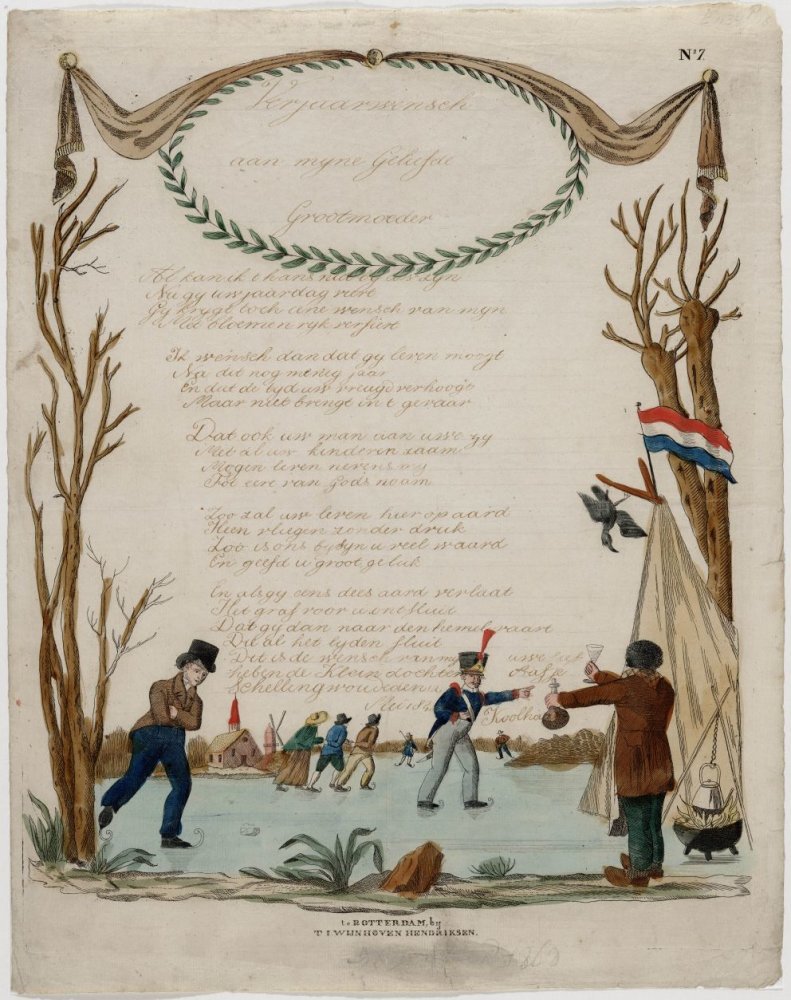 Nº 7.
Verjaarwensch
aan myne Geliefde
Grootmoeder
Al kan ik thans niet by U zyn
Nu gy uw jaardag viert
Gy krygt toch eene wensch van myn
Met bloemen ryk versiert
Ik wensch dan dat gy leven moogt
Na dit nog menig jaar
En dat de tyd uw vreugd verhoogt
Maar niet brengt in t gevaar
Dat ook uw man aan uwe zy
Met al uw kinderen zaam
Mogen leven nevens my
Tot eere van Gods naam
Zoo zal uw leven hier op aard
Heen vliegen zonder druk
Zoo is ons byzyn u veel waard
En geefd u groot geluk
En als gy eens dees aard verlaat
Het graf voor u ontsluit
Dat gy dan naar den hemel vaart
Dit is de wensch van my uwe
Schellingwoude den
Koolha
te ROTTERDAM, by
T I WIJNHOVEN HENDRIKSEN.